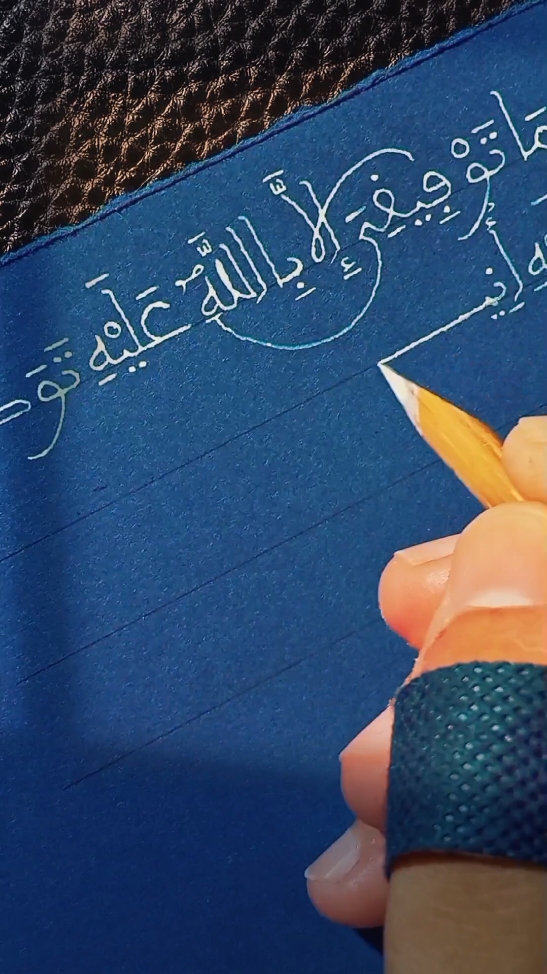 مَا تَوْفِيقِي إِلَّا بِاللَّهِ عَلَيْهِ تَو
هِ أُنِيـ